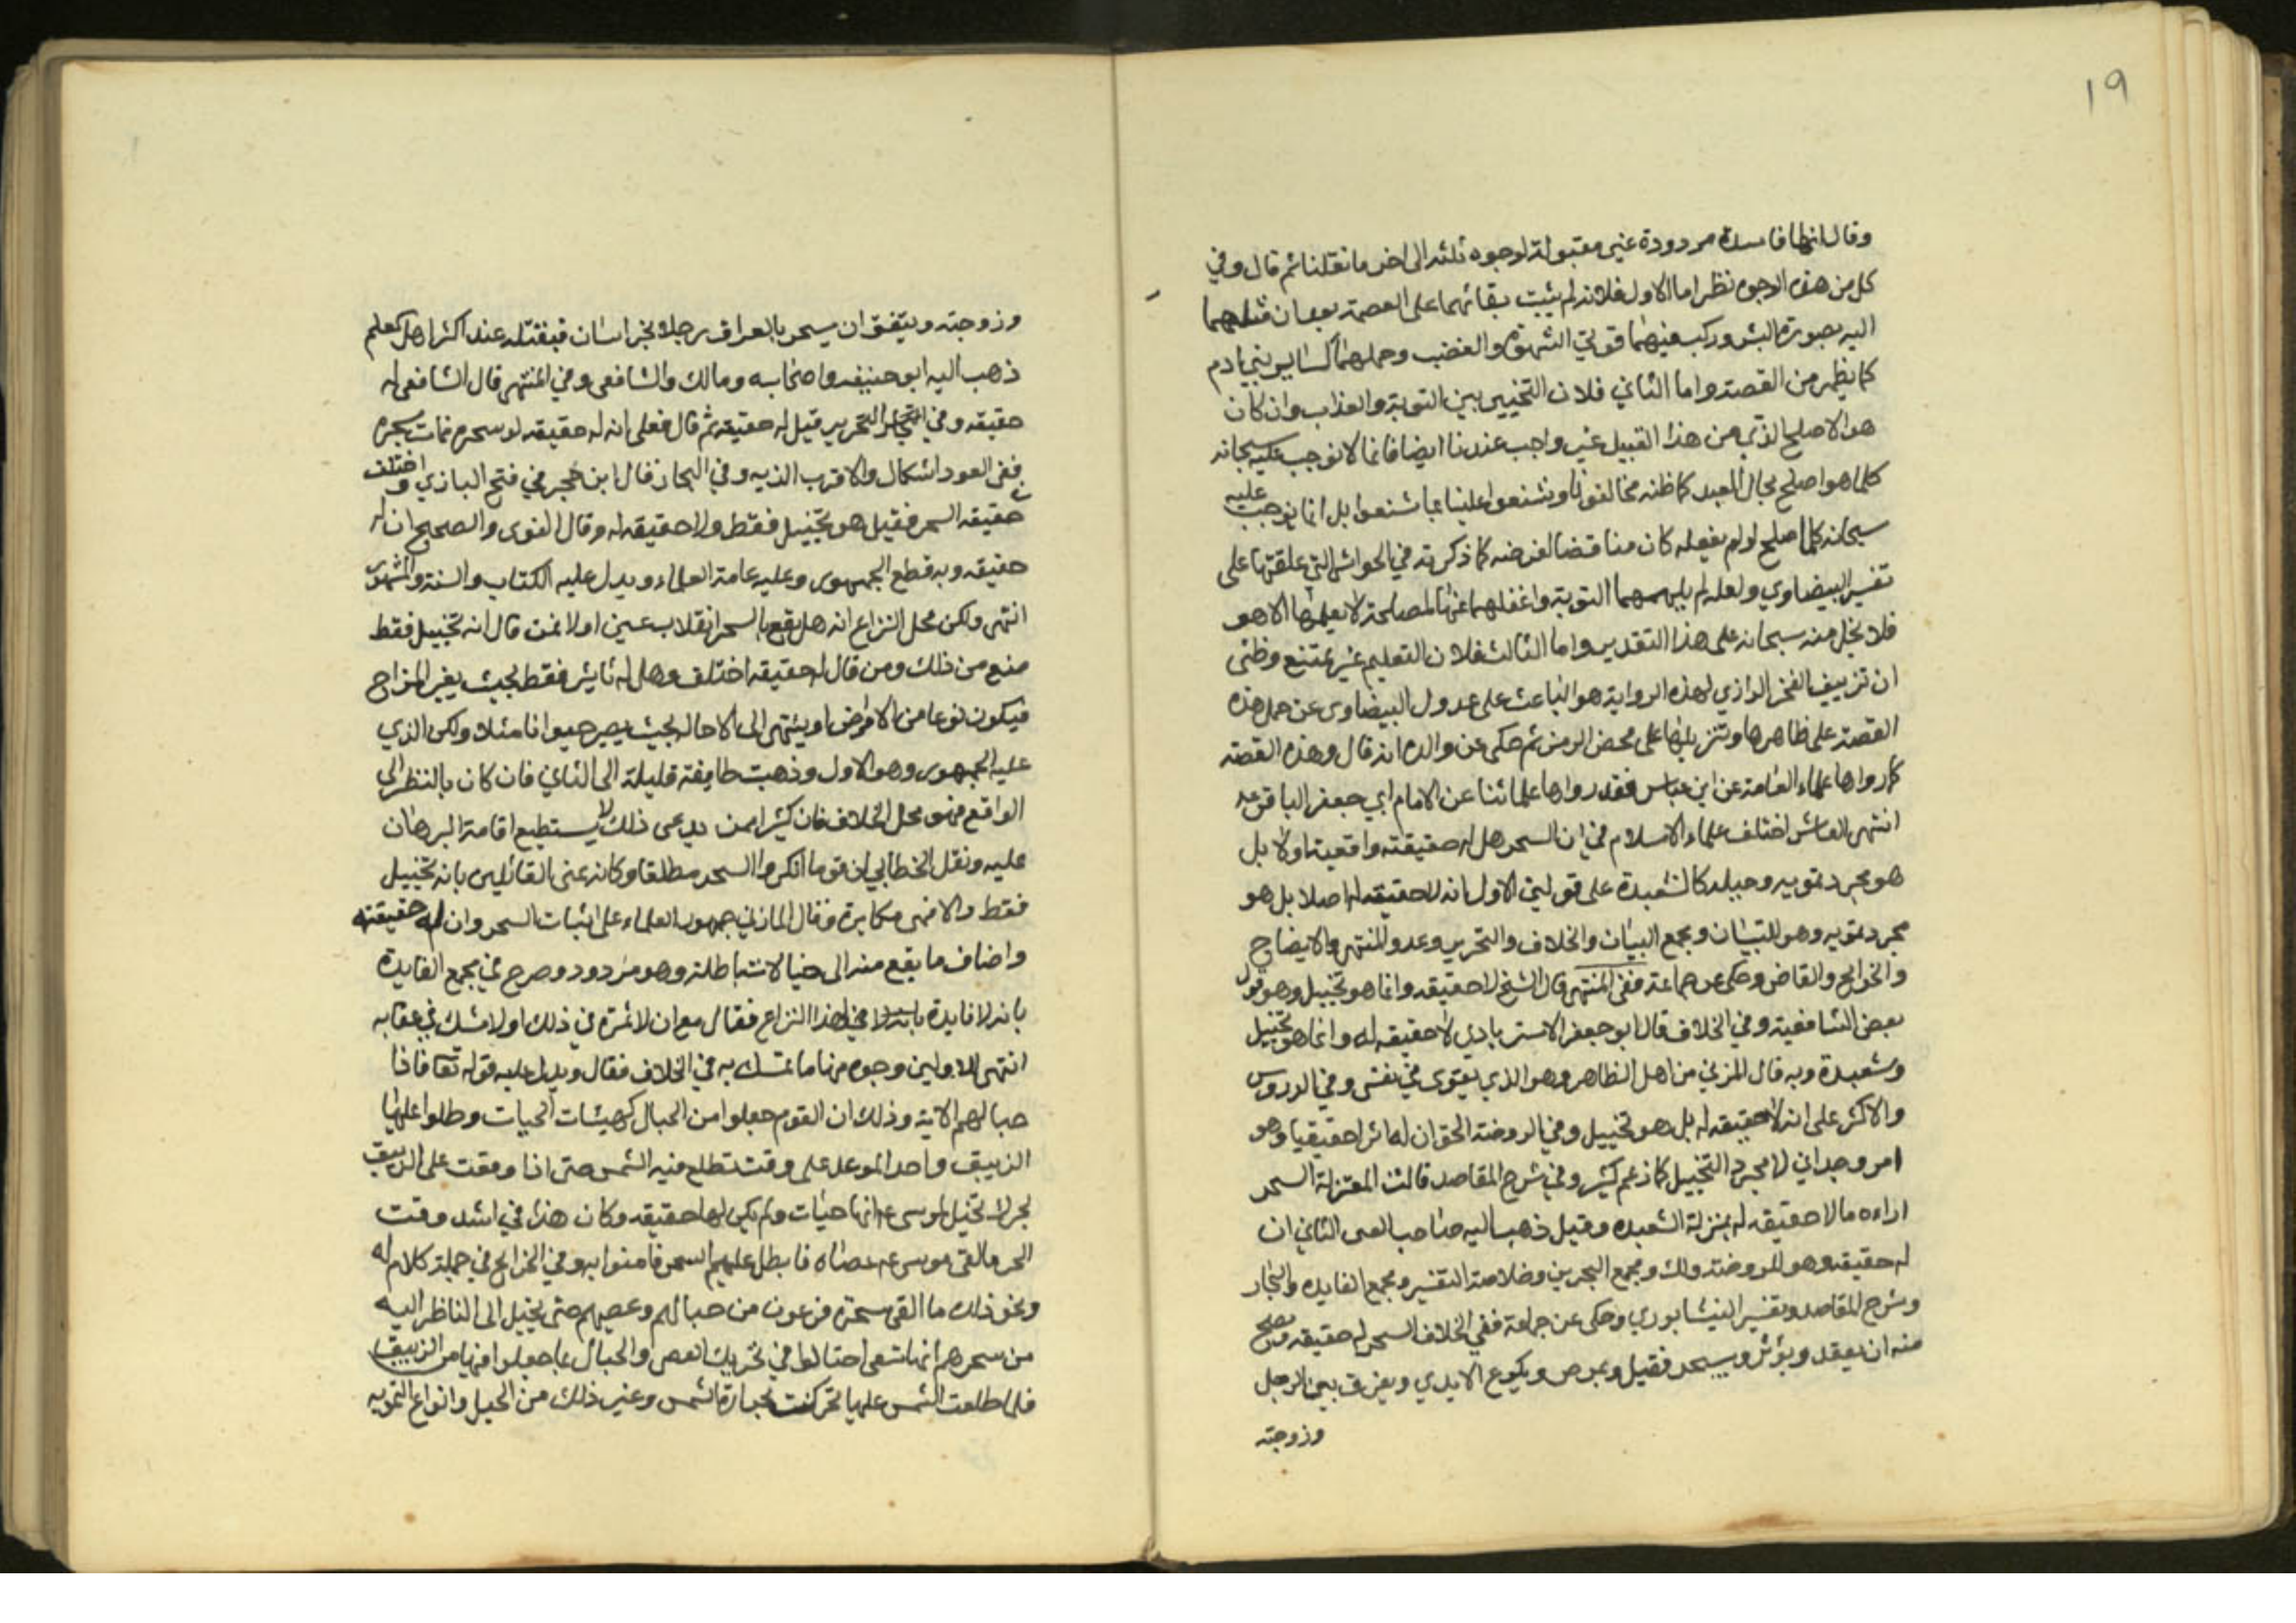 ١٩
وقال انها فاسدة مردودة غير مقبولة لوجوه ثلثه الى اخر ما نقلنا ثم قال وفي
كل من هذه الوجوه نظر اما الاول فلانه لم يثبت بقائهما على العصمة بعد ان
اليه بصورة البشر وركب فيهما قوتي الشهوة والغضب وجعلهما كساير بني ادم
كما يظهر من القصة واما الثاني فلان التخيير بين التوبة والعذاب وان كان
هو الاصلح الذي من هذا القبيل غير واجب عندنا ايضا فانا لا نوجب عليه سبحانه
كلما هو اصلح بحال العبد كما ظنه مخالفونا وشنعوا علينا بما شنعوا بل انما نوجب عليه
سبحانه كلما اصلح لو لم يفعله كان مناقضا لغرضه كما ذكرته في الحواشي التي علقتها على
تفسير البيضاوي ولعله لم يلهمهما التوبة واغفلهما عنها لمصلحة لا يعلمها الا هو
فلا بخل منه سبحانه على هذا التقدير واما الثالث فلان التعليم غير ممتنع وظني
ان تزييف الفخر الرازي لهذه الرواية هو الباعث على عدول البيضاوي عن حمل هذه
القصة على ظاهرها وتنزيلها على محض الرمز ثم حكى عن والده انه قال وهذه القصة
كما رواها علماء العامة عن ابن عباس فقد رواها علمائنا عن الامام ابي جعفر الباقر عه
انتهى العاشر اختلف علماء الاسلام في ان السحر هل له حقيقة واقعية اولا بل
هو مجرد تمويه وحيله كالشعبدة على قولين الاول انه لا حقيقه له اصلا بل هو
مجرد تمويه وهو للتبيان ومجمع البيان والخلاف والتحرير وعد والمنتهى والايضاح
والخرايج والقاضي وحكى عن جماعة ففي المنتهى قال الشيخ لا حقيقه وانما هو تخييل وهو قول
بعض الشافعية وفي الخلاف قال ابو جعفر الاسترابادي لا حقيقه له وانما هو تخييل
وشعبدة وبه قال المزني من اهل الظاهر وهو الذي يقوى في نفسي وفي الدروس
والاكثر على انه لا حقيقه له بل هو تخييل وفي الروضة الحق ان له اثرا حقيقيا وهو
امر وجداني لا مجرد التخييل كما زعم كثير وفي شرح المقاصد قالت المعتزلة السحر
اراءه ما لا حقيقه له بمنزلة الشعبده وقيل ذهب اليه صاحب العين الثاني ان
له حقيقه وهو للروضة ولك ومجمع البحرين وخلاصة التفسير ومجمع الفايده والبحار
وشرح المقاصد وتفسير النيشابوري وحكى عن جماعة ففي الخلاف السحر له حقيقه ويصح
منه ان يعقد ويؤثر ويسحر فقيل ويمرض ويكوع الايدي ويفرق بين الرجل
وزوجته
وزوجته ويتفق ان يسحر بالعراق رجلا بخراسان فيقتله عند اكثر اهل العلم
ذهب اليه ابو حنيفه واصحابه ومالك والشافعي وفي المنتهى قال الشافعي له
حقيقه وفي التحرير قيل له حقيقه ثم قال فعلى انه له حقيقه لو سحره فمات بسحره
ففي القود اشكال والاقرب الديه وفي البحار قال ابن حجر في فتح الباري واختلف
في حقيقه السحر فقيل هو تخييل فقط ولا حقيقه له وقال النووي والصحيح ان له
حقيقه وبه قطع الجمهور وعليه عامة العلماء ويدل عليه الكتاب والسنة والمشهور
انتهى ولكن محل النزاع انه هل يقع بالسحر انقلاب عين اولا فمن قال انه تخييل فقط
منع من ذلك ومن قال له حقيقه اختلف وهل له تاثير فقط بحيث يغير المزاج
فيكون نوعا من الامراض او ينتهي الى الاحالة بحيث يصير حيوانا مثلا ولكن الذي
عليه الجمهور وهو الاول وذهبت طايفة قليلة الى الثاني فان كان بالنظر الى
الواقع فهو محل الخلاف فان كثيرا ممن يدعي ذلك لا يستطيع اقامة البرهان
عليه ونقل الخطابي ان قوما انكروا السحر مطلقا وكانه عنى القائلين بانه تخييل
فقط والا فهي مكابرة وقال المازني جمهور العلماء على اثبات السحر وان له حقيقته
واضاف ما يقع منه الى خيالات باطلة وهو مردود وصرح في مجمع الفايدة
بانه لا فايدة في هذا النزاع فقال مع ان لا ثمرة في ذلك اولا شك في عقابه
انتهى للاولين وجوه منها ما تمسك به في الخلاف فقال ويدل عليه قوله تعا فاذا
حبالهم الاية وذلك ان القوم جعلوا من الحبال كهيئات الحيات وطلوا عليها
الزيبق واخذ الموعد على وقت تطلع فيه الشمس حتى اذا وقعت على الزيبق
تخيل لموسى عه انها حيات ولم يكن لها حقيقه وكان هذا في اشد وقت
الحر فالقى موسى عه عصاه فابطل عليهم السحر فامنوا به وفي الخرايج في جملة كلام له
ونحو ذلك ما القى سحرة فرعون من حبالهم وعصيهم حتى يخيل الى الناظر اليه
من سحرهم انها تسعى احتالوا في تحريك العصى والحبال بما جعلوا فيها من الزيبق
فلما طلعت الشمس عليها تحركت بحرارة الشمس وغير ذلك من الحيل وانواع التمويه